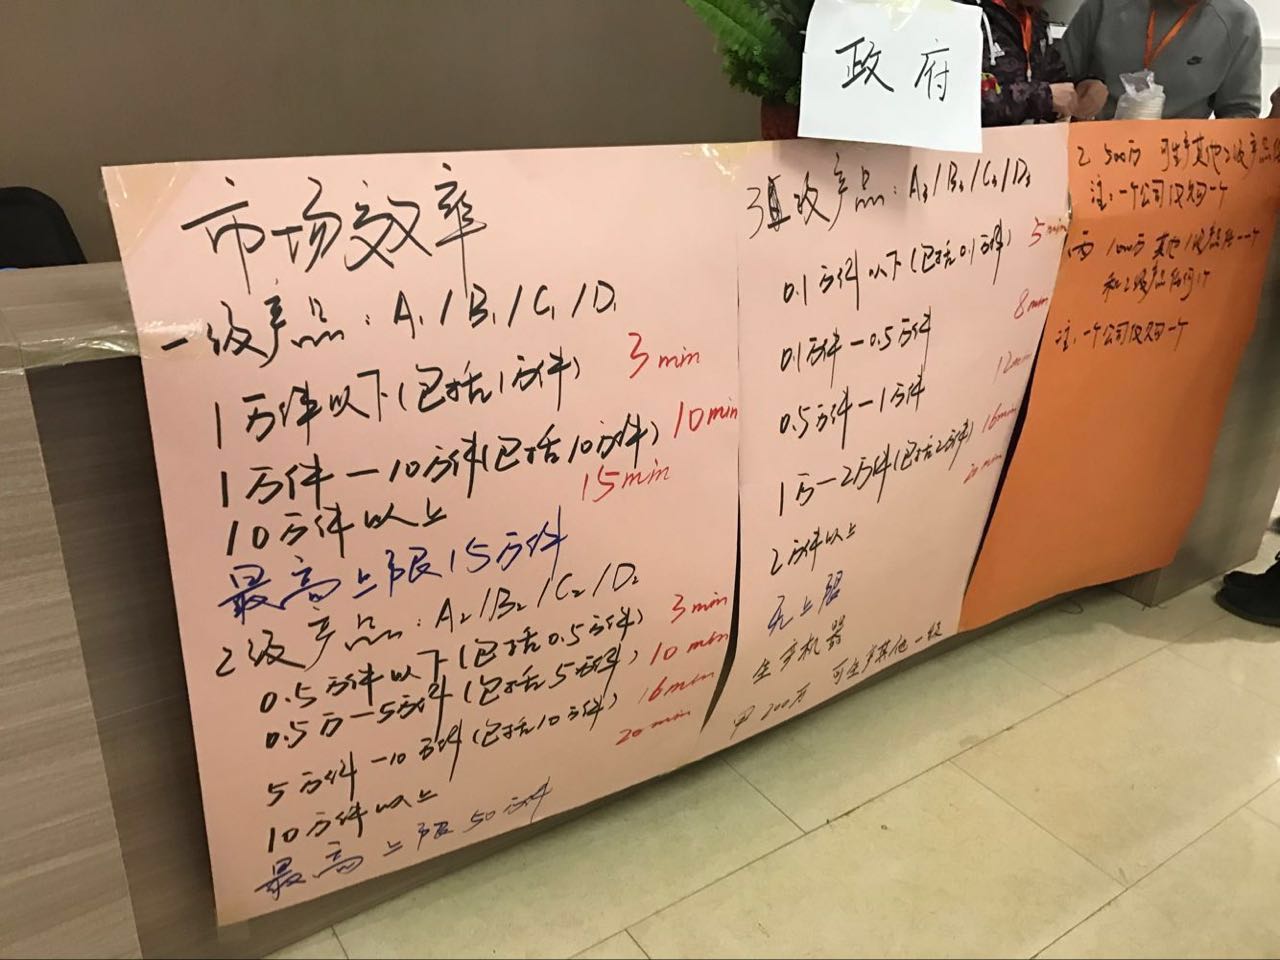 政府
市场效率
一级产品：A₁/B₁/C₁/D₁
1万件以下(包括1万件) 3min
1万件—10万件(包括10万件) 10min
10万件以上 15min
最高上限15万件
2级产品：A₂/B₂/C₂/D₂
0.5万件以下(包括0.5万件) 3min
0.5万—5万件(包括5万件) 10min
5万件—10万件(包括10万件) 16min
10万件以上 20min
最高上限50万件
级产品：A₃/B₃/C₃/D₃
0.1万件以下(包括0.1万件) 5min
0.1万件—0.5万件 8min
0.5万件—1万件 12min
1万—2万件(包括2万件) 16min
2万件以上 20min
无上限
生产机器
甲 200万 可生产其他一级
乙 500万 可生产其他2级产品
注：一个公司仅可一个
丙 1000万 其他1级产品任一个
和2级产品任何1个
注：一个公司仅可一个